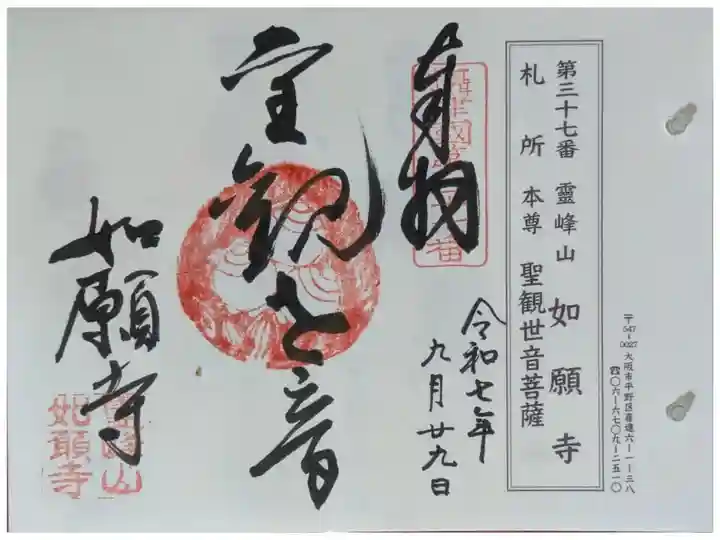 〒547-0027 大阪市平野区喜連六ー一ー三八
☎〇六ー六七〇九ー二五一〇
第三十七番 靈峰山 如願寺
札所 本尊 聖観世音菩薩
奉拝
令和七年
九月廿九日
聖観世音
如願寺
靈峰山
如願寺